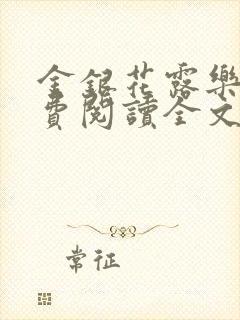 金銀花露樂
費閱讀全文
常征